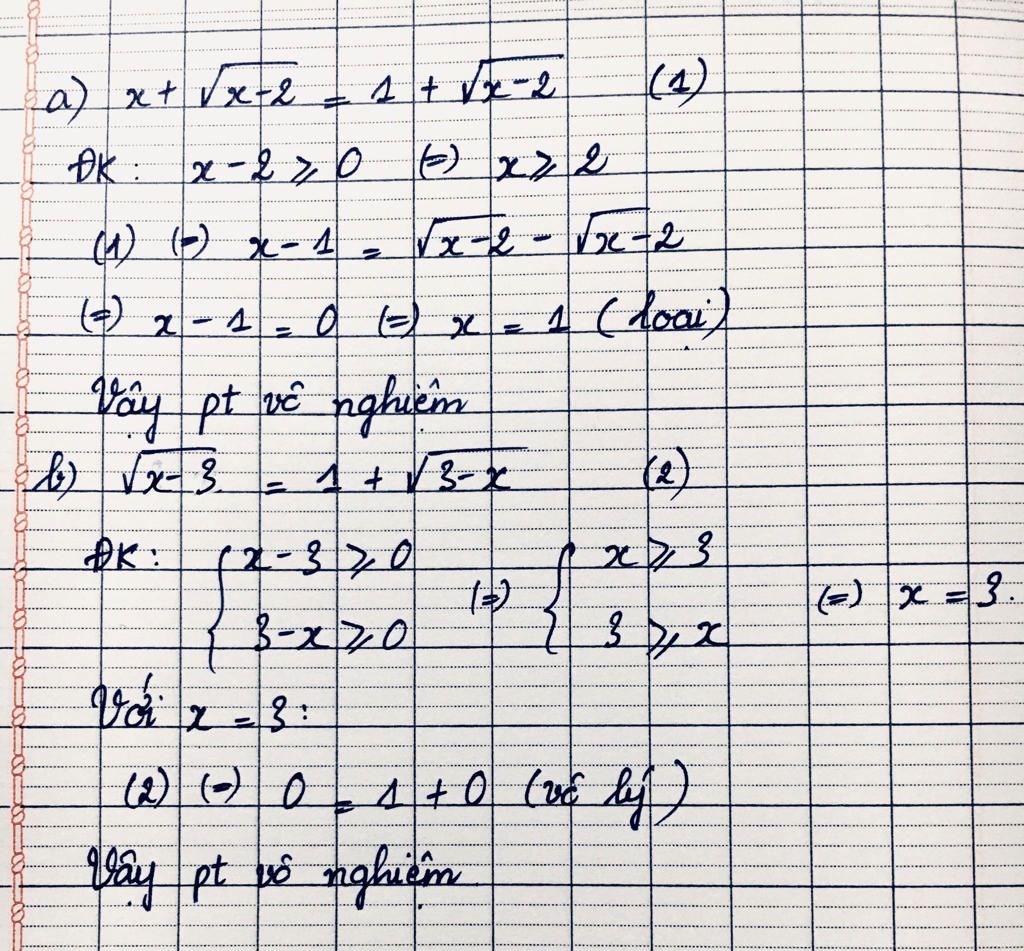 a) x + √(x-2) = 1 + √(x-2) (1)
ĐK: x - 2 ⩾ 0 (=) x ⩾ 2
(1) (=) x - 1 = √(x-2) - √(x-2)
(=) x - 1 = 0 (=) x = 1 (loại)
Vậy pt vô nghiệm
b) √(x-3) = 1 + √(3-x) (2)
ĐK: { x - 3 ⩾ 0 (=) { x ⩾ 3 (=) x = 3.
3 - x ⩾ 0 3 ⩾ x
Với x = 3:
(2) (=) 0 = 1 + 0 (vô lý)
Vậy pt vô nghiệm